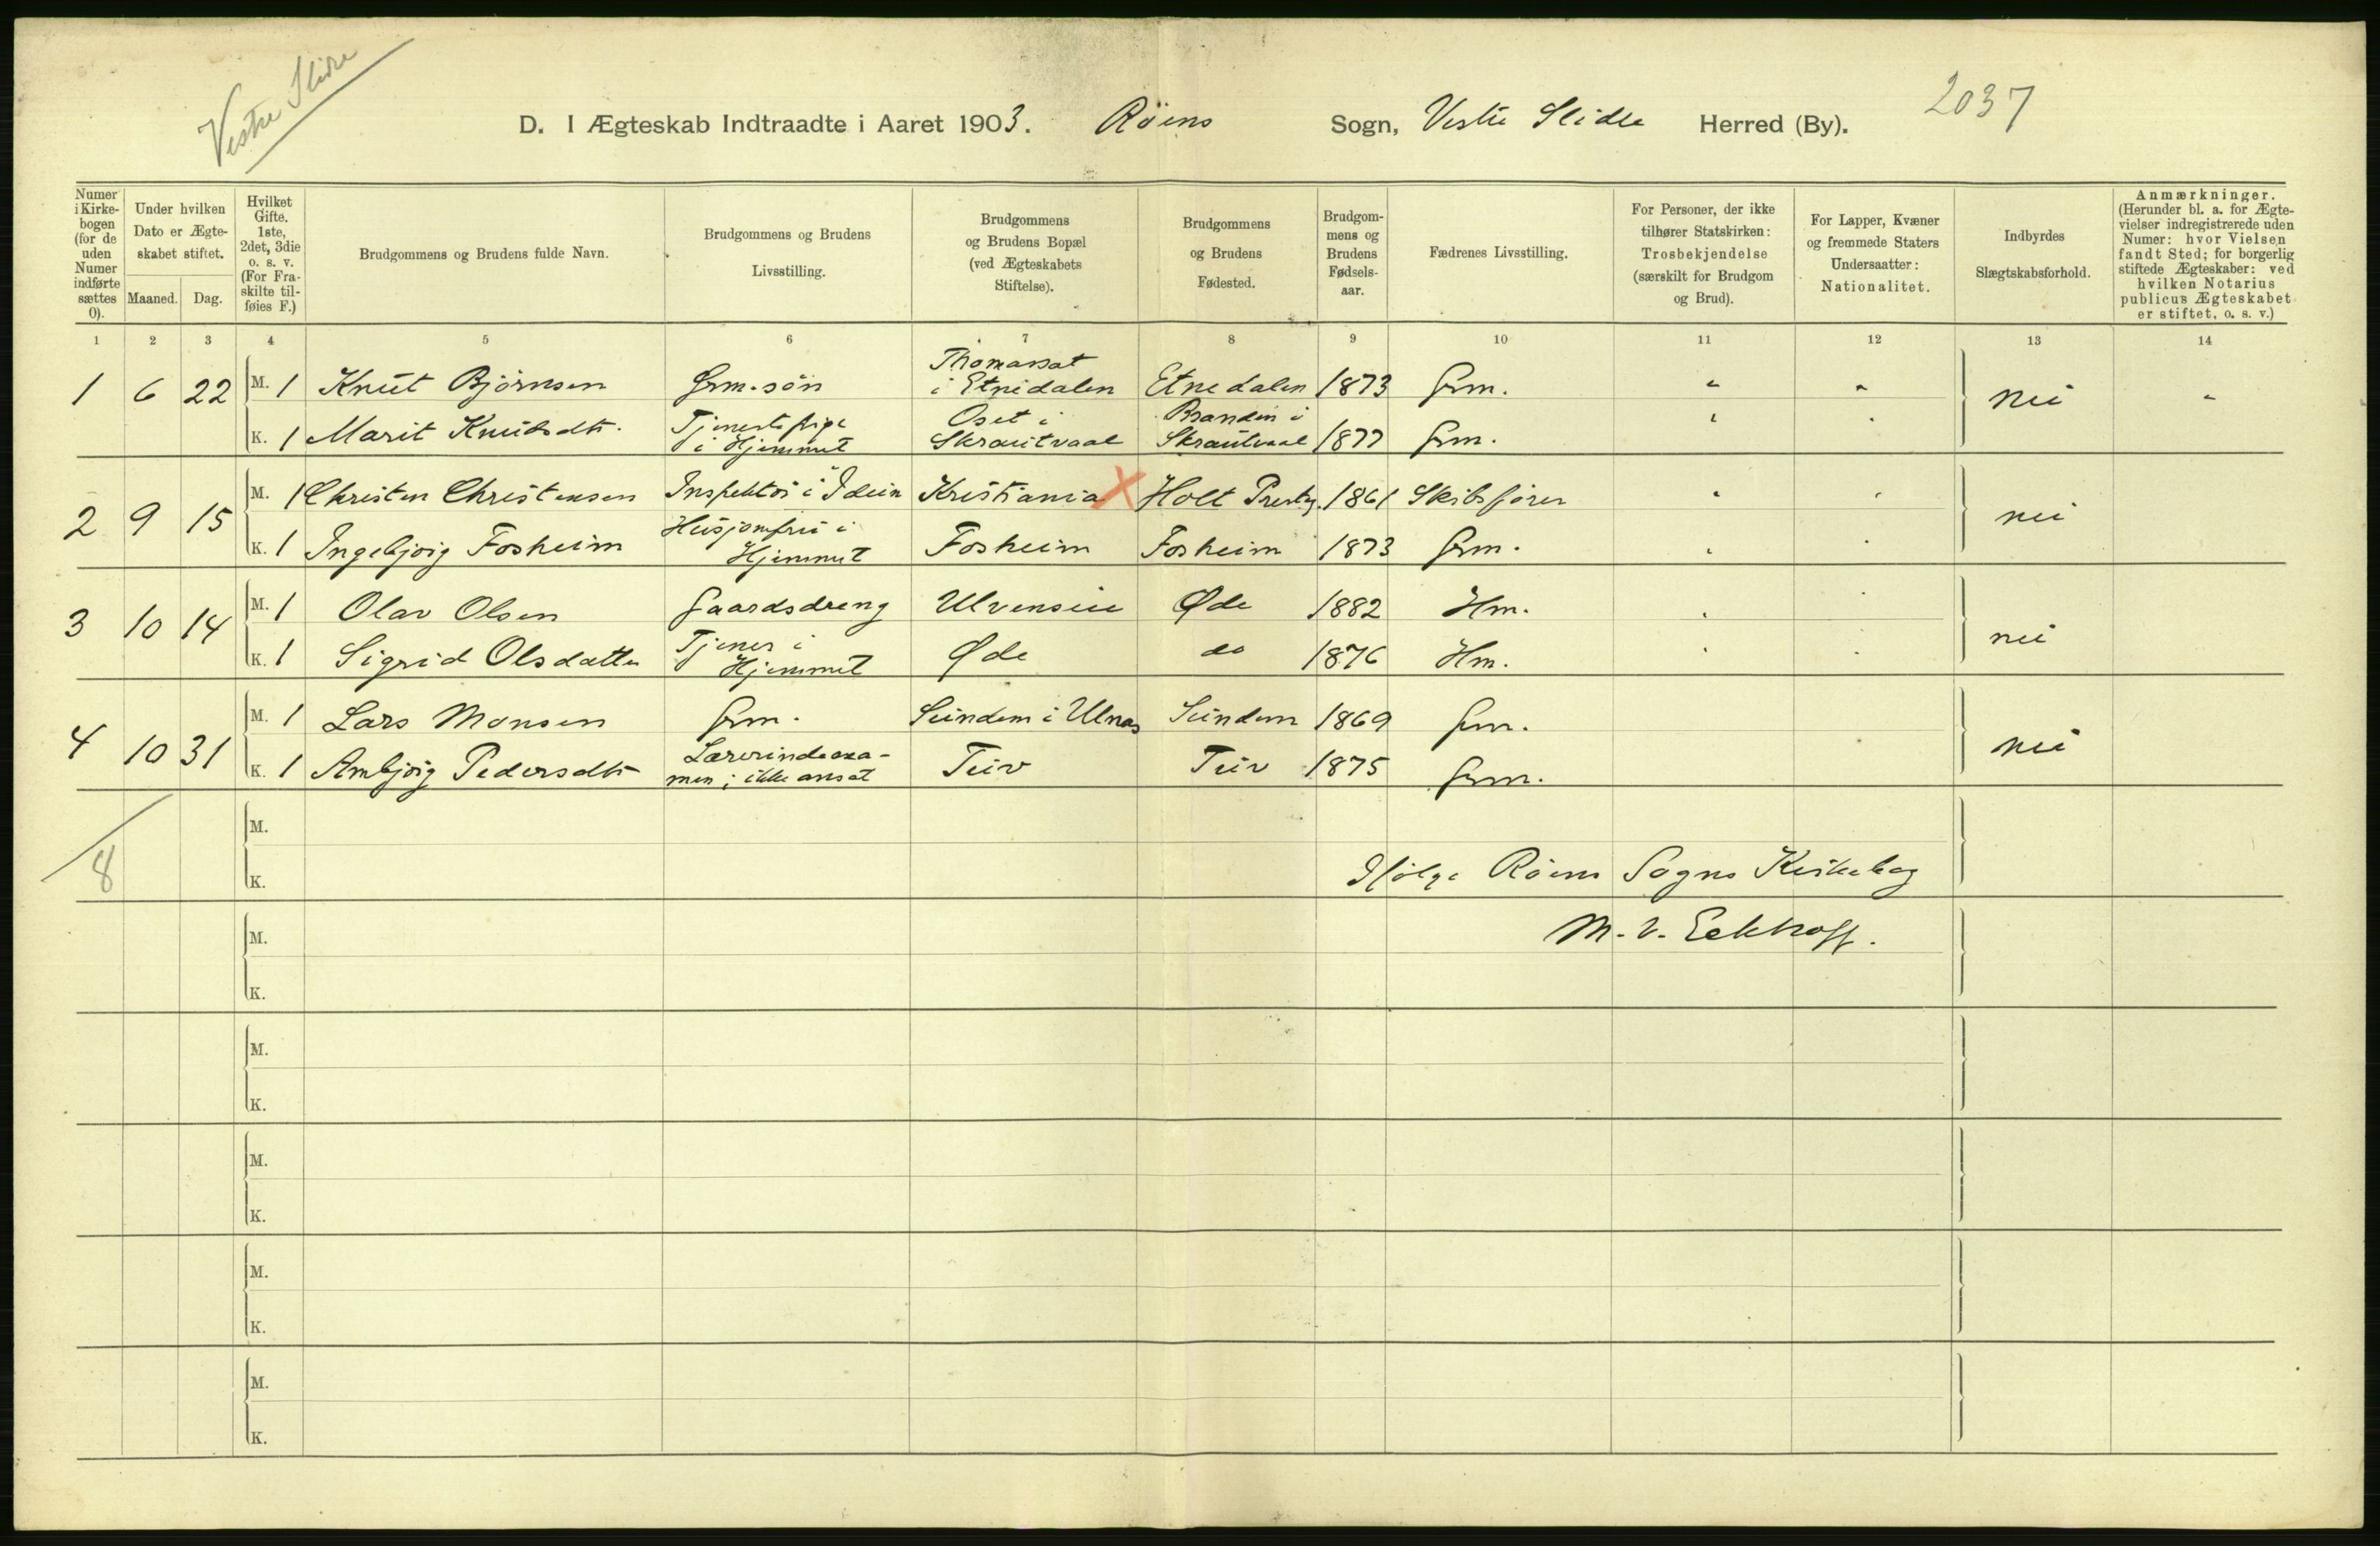 Vestre Slidre
D. I Ægteskab Indtraadte i Aaret 1903. Röens Sogn, Vestre Slidre Herred (By). 2037
Numer i Kirkebogen (for de uden Numer indførte sættes 0).
Under hvilken Dato er Ægteskabet stiftet.
Maaned. Dag.
Hvilket Gifte, 1ste, 2det, 3die o. s. v. (For Fraskilte tilføies F.)
Brudgommens og Brudens fulde Navn.
Brudgommens og Brudens Livsstilling.
Brudgommens og Brudens Bopæl (ved Ægteskabets Stiftelse).
Brudgommens og Brudens Fødested.
Brudgommens og Brudens Fødselsaar.
Fædrenes Livsstilling.
For Personer, der ikke tilhører Statskirken: Trosbekjendelse (særskilt for Brudgom og Brud).
For Lapper, Kvæner og fremmede Staters Undersaatter: Nationalitet.
Indbyrdes Slægtskabsforhold.
Anmærkninger. (Herunder bl. a. for Ægtevielser indregistrerede uden Numer: hvor Vielsen fandt Sted; for borgerlig stiftede Ægteskaber: ved hvilken Notarius publicus Ægteskabet er stiftet, o. s. v.)
1 2 3 4 5 6 7 8 9 10 11 12 13 14
1 6 22 M. 1 Knut Björnsen Grm.sön Thomasset i Etnedalen Etnedalen 1873 Grm. " " nei "
K. 1 Marit Knudsdtr. Tjenestepige i Hjemmet Oset i Skrautvaal Branden i Skrautvaal 1877 Grm. "
2 9 15 M. 1 Christen Christensen Inspektör i Kristiania X Holt Prestg. 1861 Skibsförer nei
K. 1 Ingebjörg Fosheim Husjomfru i Hjemmet Fosheim Fosheim 1873 Grm.
3 10 14 M. 1 Olav Olsen Gaardsdreng Ulvensiu Øde 1882 Hm. nei
K. 1 Sigrid Olsdatter Tjener i Hjemmet Øde do 1876 Hm.
4 10 31 M. 1 Lars Monsen Grm. Sundem i Ulnæs Sundem 1869 Grm. nei
K. 1 Ambjörg Pedersdtr Lærerindeexamen; ikke ansat Tuv Tuv 1875 Grm.
M.
8 K.
Ifölge Röens Sogns Kirkebog
M. V. Eckhoff.
M.
K.
M.
K.
M.
K.
M.
K.
M.
K.